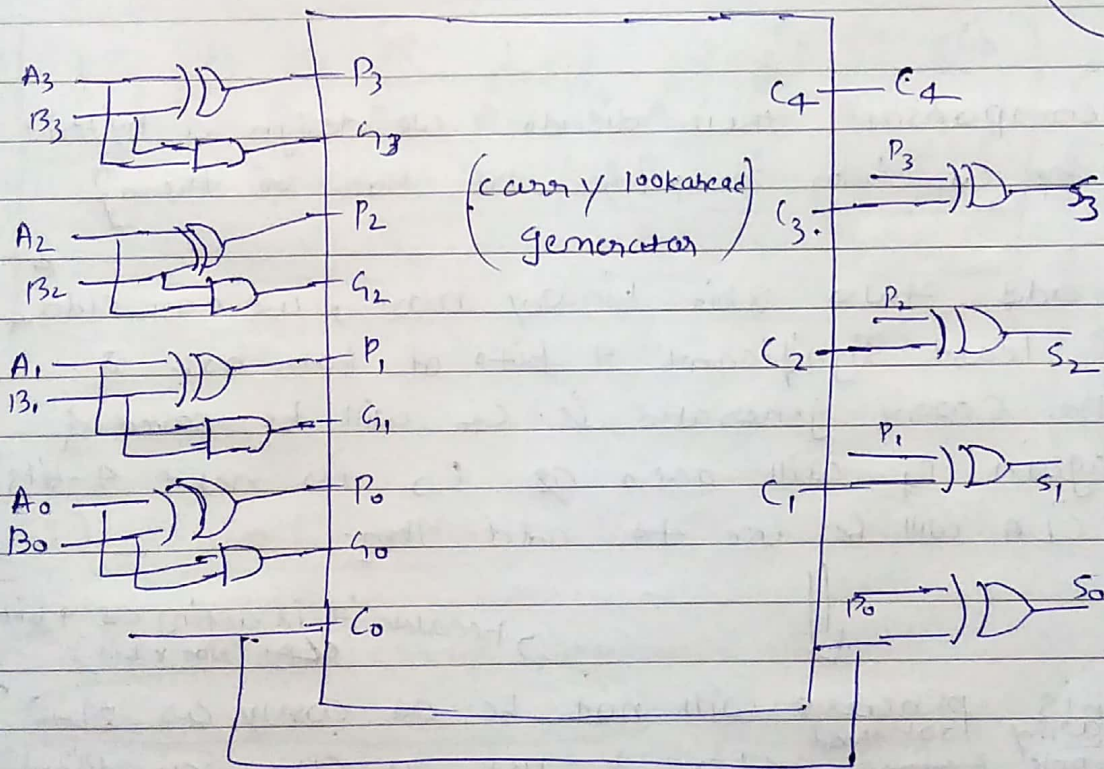 A3
B3
P3
G3
A2
B2
P2
G2
A1
B1
P1
G1
A0
B0
P0
G0
C0
(carry lookahead
generator)
C4 C4
P3
C3. S3
P2
C2 S2
P1
C1 S1
P0 S0